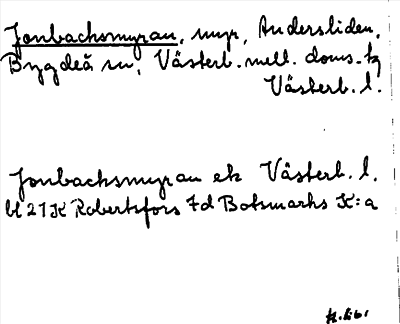 Jonbacksmyran, myr, Andersliden,
Bygdeå sn, Västerb. mell. doms. tg
Västerb. l.
Jonbacksmyran ek Västerb. l.
bl 21K Robertsfors 7d Botsmarks K:a